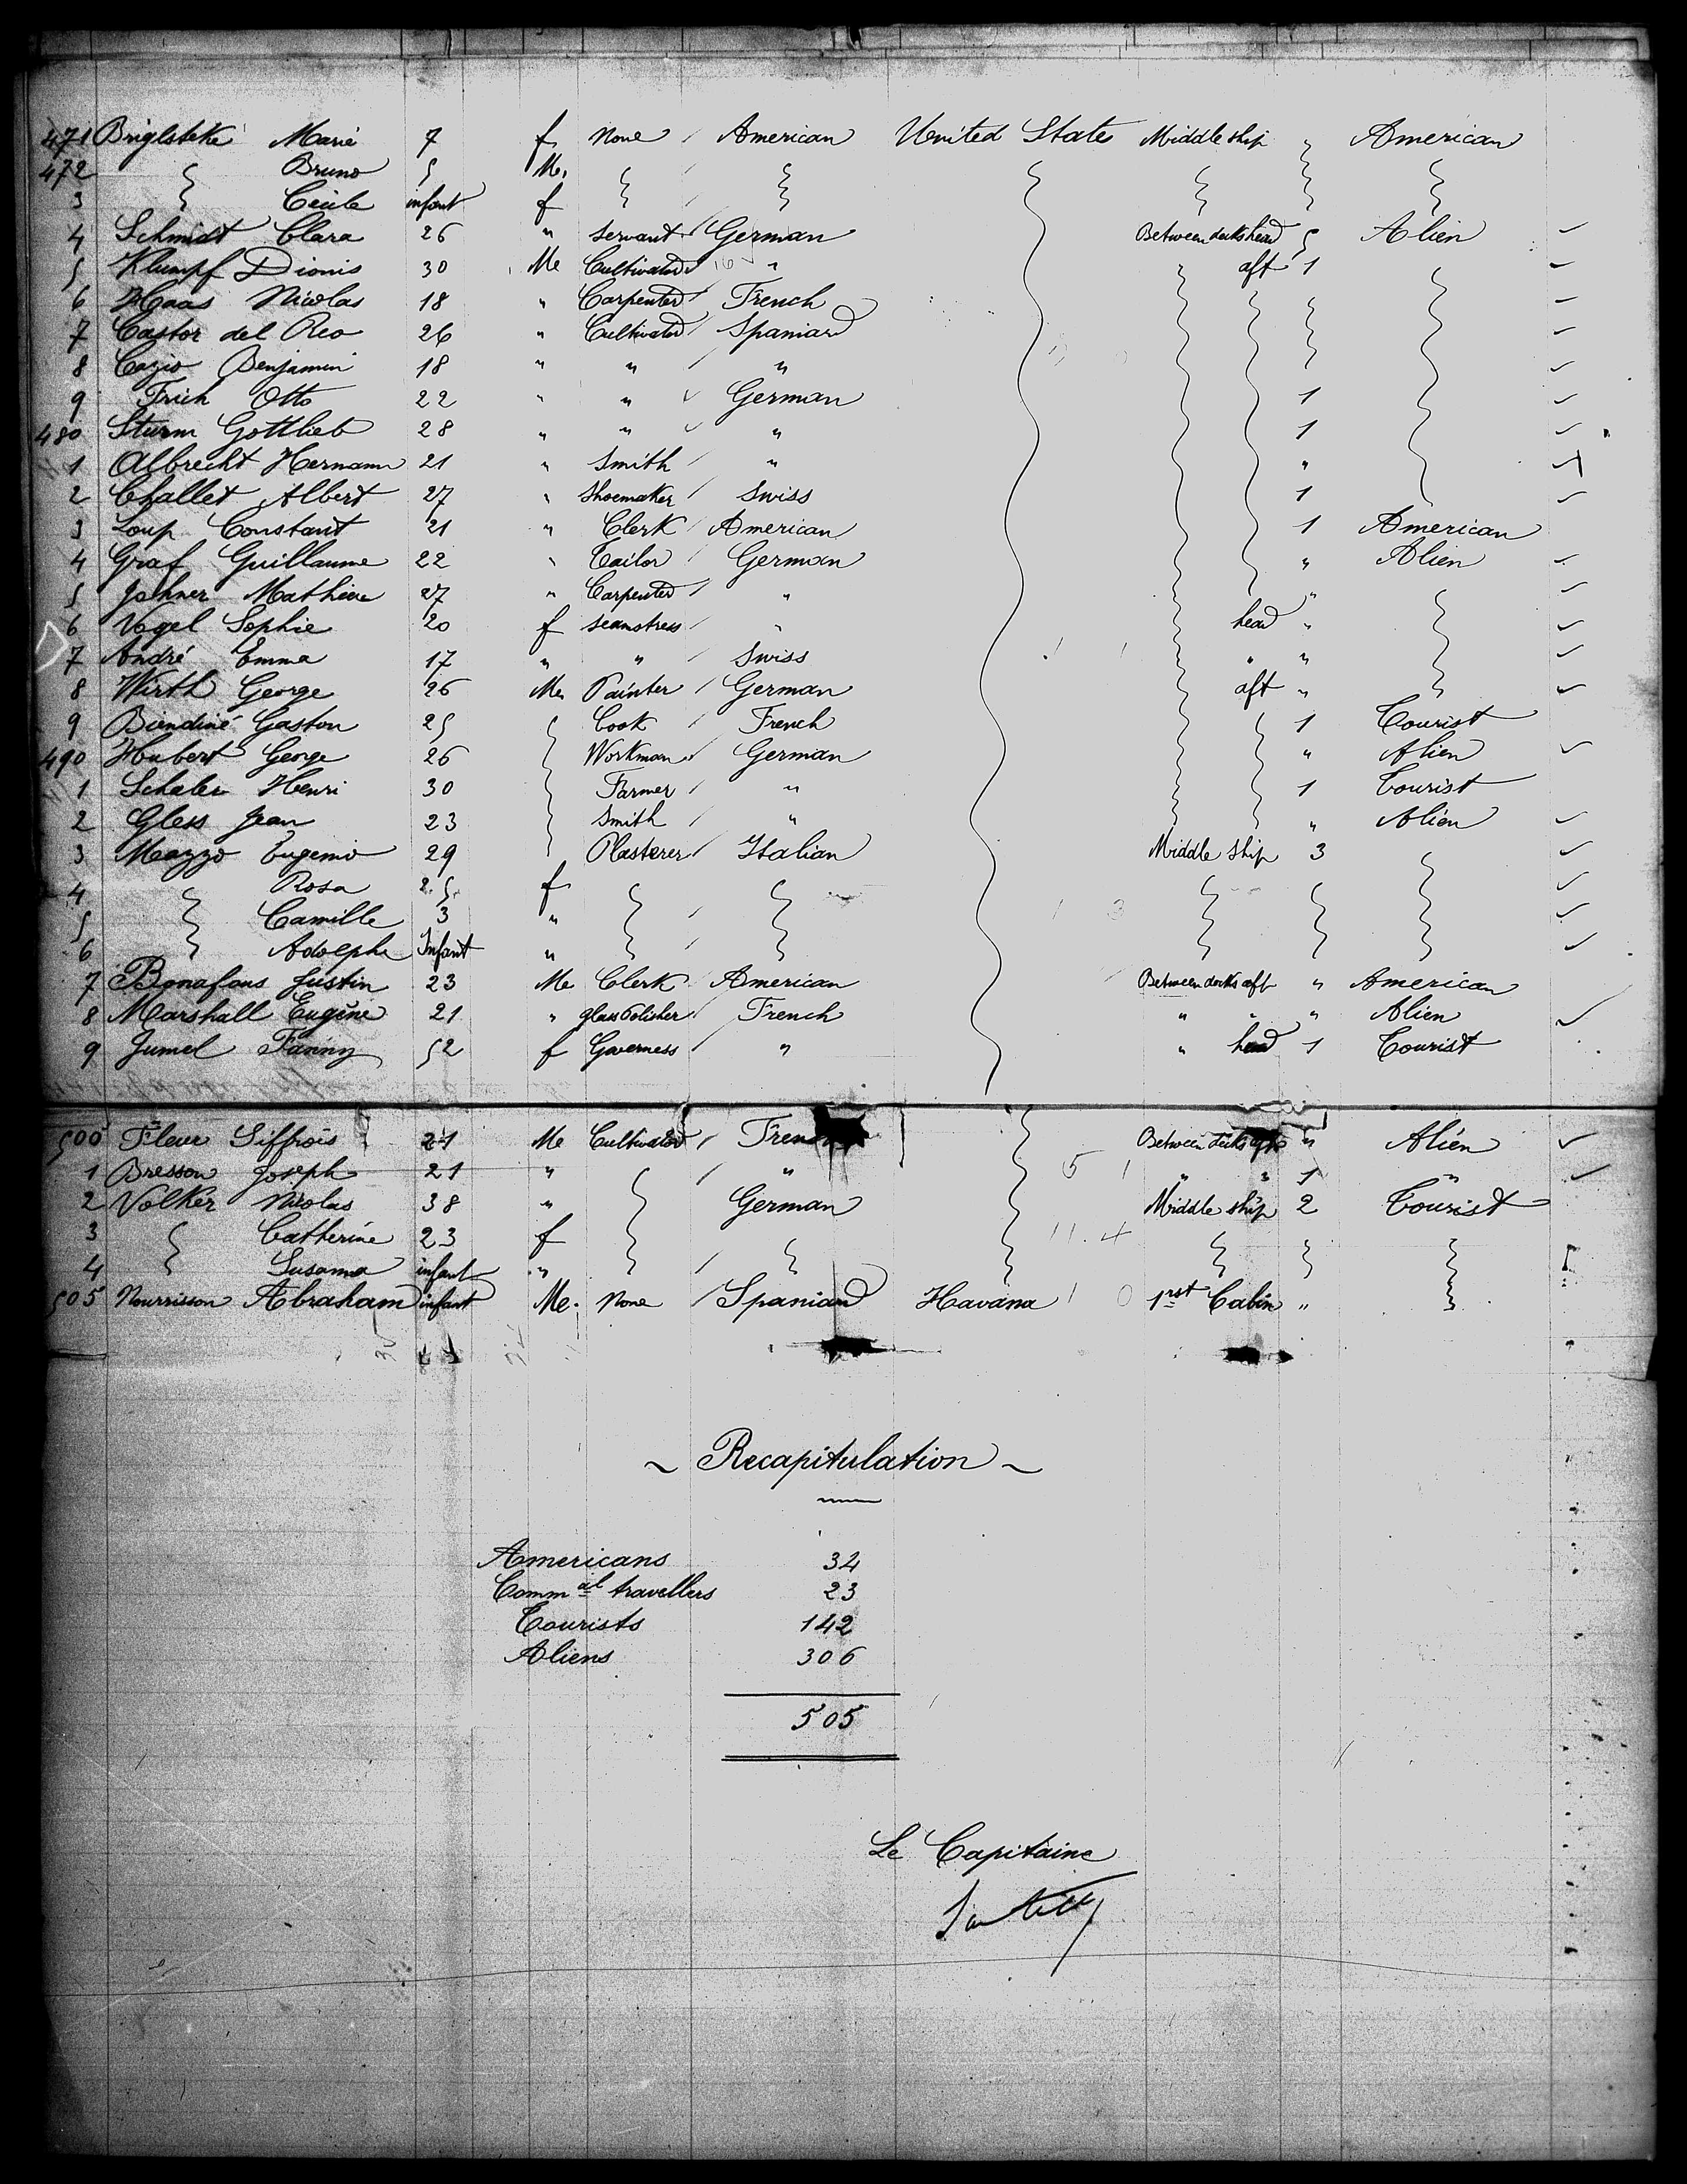 471 Briglsteke Marie 7 f. None American United States Middle ship " American
472 " Bruno 5 Me. " " " " "
3 " Cécile infant f " " " " "
4 Schmidt Clara 26 " Servant German Between decks head " Alien
5 Klumpf Dionis 30 Me Cultivator " aft 1
6 Haas Nicolas 18 " Carpenter French
7 Castor del Rio 26 " Cultivator Spaniard
8 Cazio Benjamin 18 " " "
9 Frich Otto 22 " " German 1
480 Sturm Gottlieb 28 " " " 1
1 Albrecht Hermann 21 " Smith " "
2 Challet Albert 27 " Shoemaker Swiss 1
3 Loup Constant 21 " Clerk American 1 American
4 Graf Guillaume 22 " Tailor German " Alien
5 Johner Mathieu 27 " Carpenter " "
6 Vogel Sophie 20 f seamstress " head "
7 André Emma 17 " " Swiss " "
8 Wirth George 26 Me. Painter German aft "
9 Biendiné Gaston 25 Cook French 1 Tourist
490 Hubert George 26 Workman German " Alien
1 Schaler Henri 30 Farmer " 1 Tourist
2 Gless Jean 23 Smith " " Alien
3 Mazzo Eugenio 29 Plasterer Italian Middle ship 3
4 " Rosa 25 f.
5 " Camille 3 "
6 " Adolphe Infant "
7 Bonafous Justin 23 Me Clerk American Between decks aft " American
8 Marshall Eugène 21 " glass Polisher French " " " Alien
9 Jumel Fanny 52 f Governess " " head 1 Tourist
500 Fleur Siffrois 21 Me Cultivator French Between decks aft " Alien
1 Bresson Joseph 21 " " " " 1 "
2 Volker Nicolas 38 " German Middle ship 2 Tourist
3 " Catherine 23 f
4 " Susanna infant "
505 Nourrisson Abraham infant Me. None Spaniard Havana 1rst Cabin "
~ Recapitulation ~
Americans 34
Comm al travellers 23
Tourists 142
Aliens 306
505
Le Capitaine